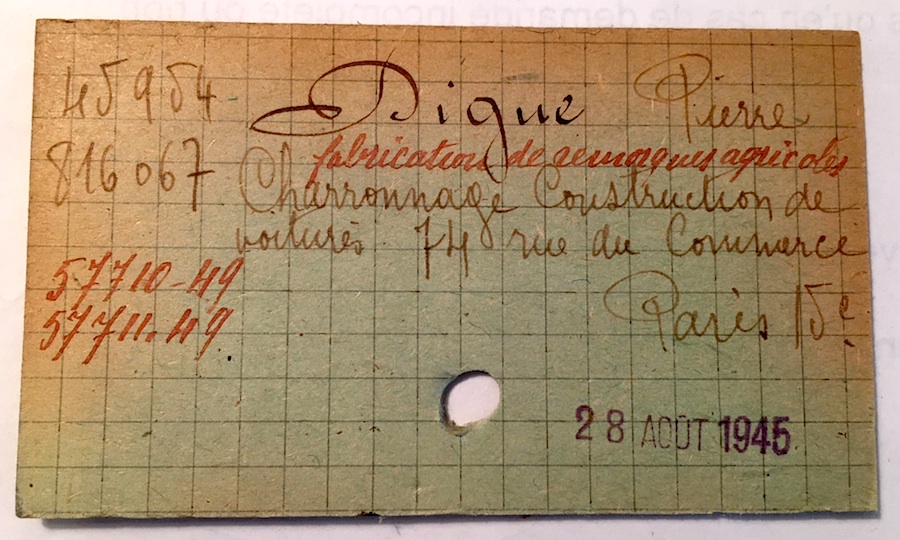 45954 Digue Pierre
fabrication de remorques agricoles
816067 Charronnage Construction de
voitures 74 rue du Commerce
57710-49
57711-49 Paris 15e
28 AOÛT 1945